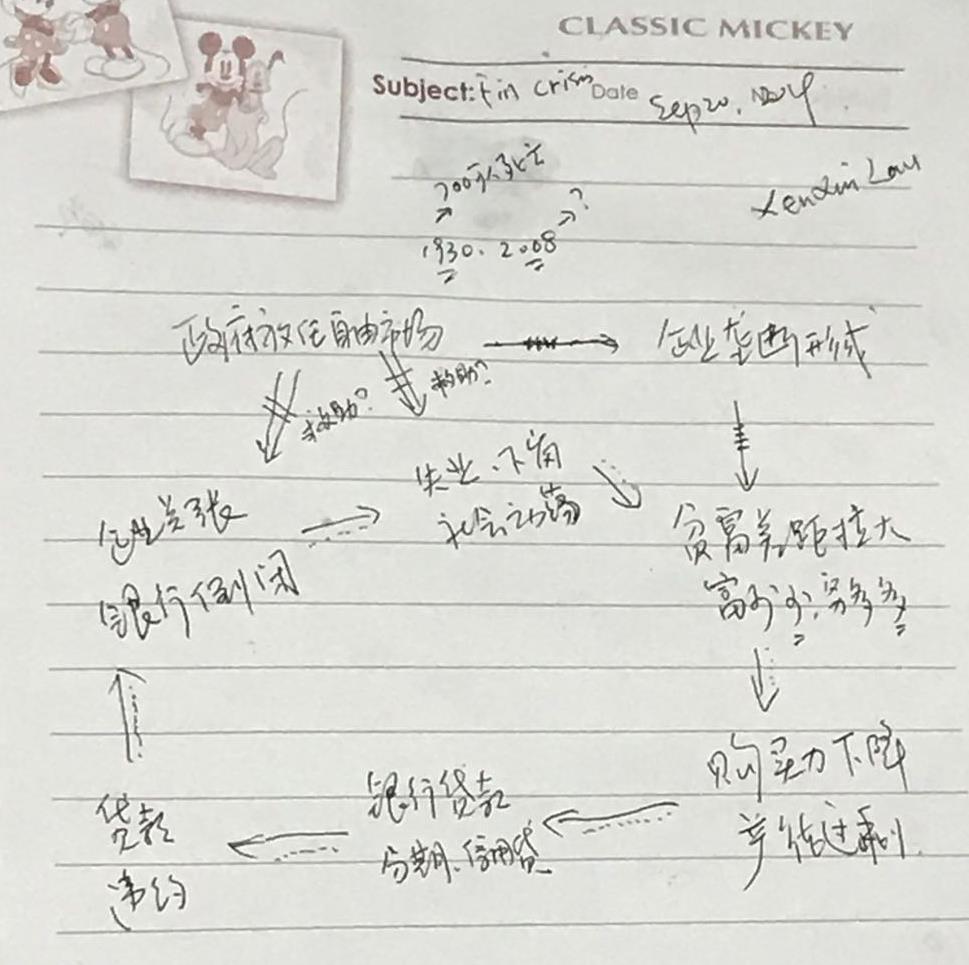 CLASSIC MICKEY
Subject: Fin crisis Date Sep 20, 2024
700万人死亡
?
1930. 2008
政府放任自由市场
企业垄断形成
救助?
救助?
企业关张
银行倒闭
失业、下岗
社会动荡
贫富差距拉大
富少少、穷多多
购买力下降
产能过剩
银行贷款
分期、信用贷
贷款
违约